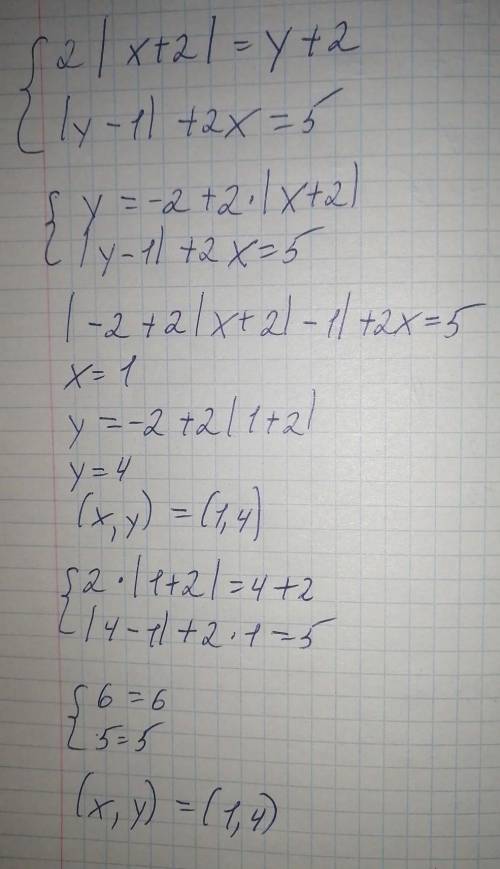 { 2|x+2| = y+2
|y-1| +2x=5
{ y = -2+2·|x+2|
|y-1| +2x=5
|-2+2|x+2|-1|+2x=5
x=1
y=-2+2|1+2|
y=4
(x,y) = (1,4)
{ 2·|1+2|=4+2
|4-1|+2·1=5
{ 6=6
5=5
(x,y) = (1,4)